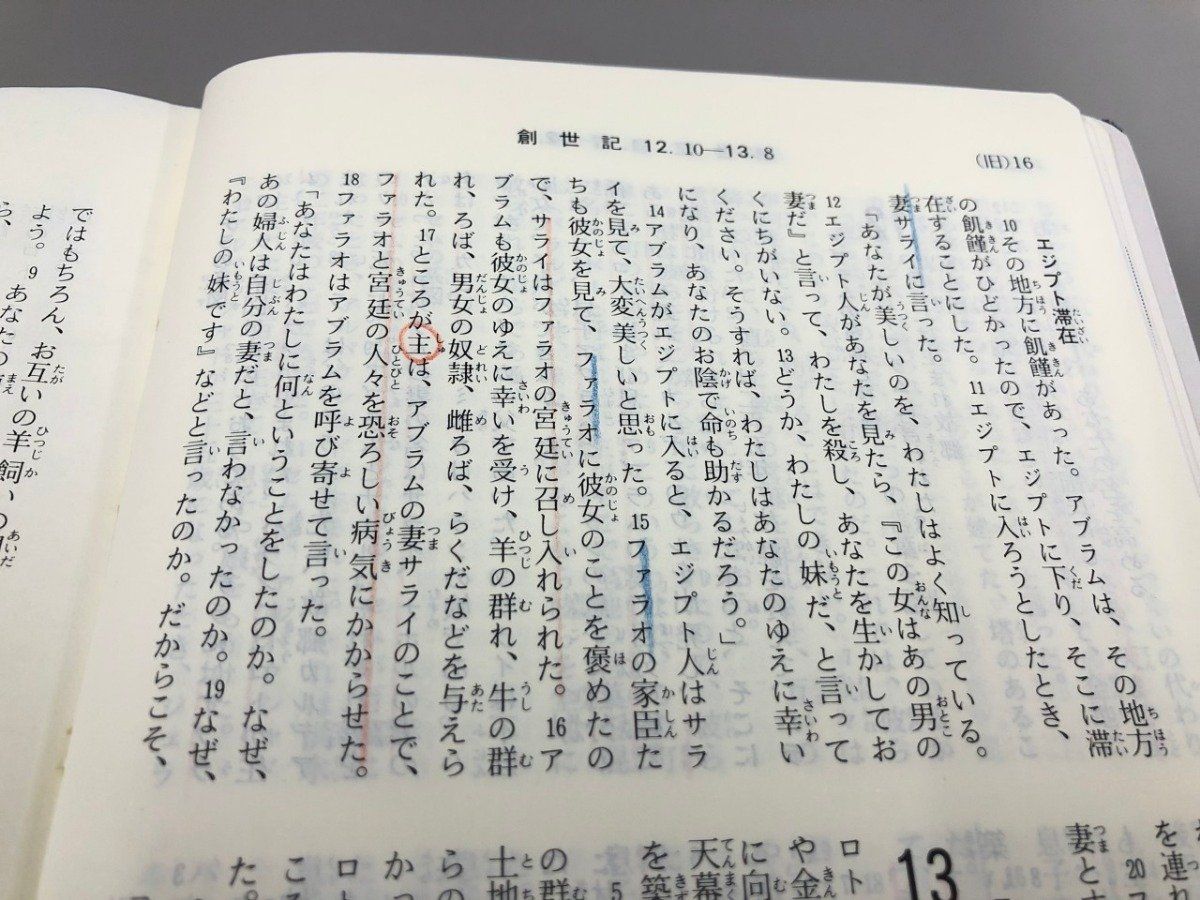 創世記 12.10―13.8
(旧)16
エジプト滞在
10その地方に飢饉があった。アブラムは、その地方
の飢饉がひどかったので、エジプトに下り、そこに滞
在することにした。11エジプトに入ろうとしたとき、
妻サライに言った。
「あなたが美しいのを、わたしはよく知っている。
12エジプト人があなたを見たら、『この女はあの男の
妻だ』と言って、わたしを殺し、あなたを生かしてお
くにちがいない。13どうか、わたしの妹だ、と言って
ください。そうすれば、わたしはあなたのゆえに幸い
になり、あなたのお陰で命も助かるだろう。」
14アブラムがエジプトに入ると、エジプト人はサラ
イを見て、大変美しいと思った。15ファラオの家臣た
ちも彼女を見て、ファラオに彼女のことを褒めたの
で、サライはファラオの宮廷に召し入れられた。16ア
ブラムも彼女のゆえに幸いを受け、羊の群れ、牛の群
れ、ろば、男女の奴隷、雌ろば、らくだなどを与えら
れた。17ところが主は、アブラムの妻サライのことで、
ファラオと宮廷の人々を恐ろしい病気にかからせた。
18ファラオはアブラムを呼び寄せて言った。
「あなたはわたしに何ということをしたのか。なぜ、
あの婦人は自分の妻だと、言わなかったのか。19なぜ、
『わたしの妹です』などと言ったのか。だからこそ、
妻と
を連れ
13
ロト
や金
に向
天幕
を築
5
の群
土地
らの
かっ
ロト
ころ
た。
ではもちろん、お互いの羊飼いの間
よう。9あなたの前
ら、